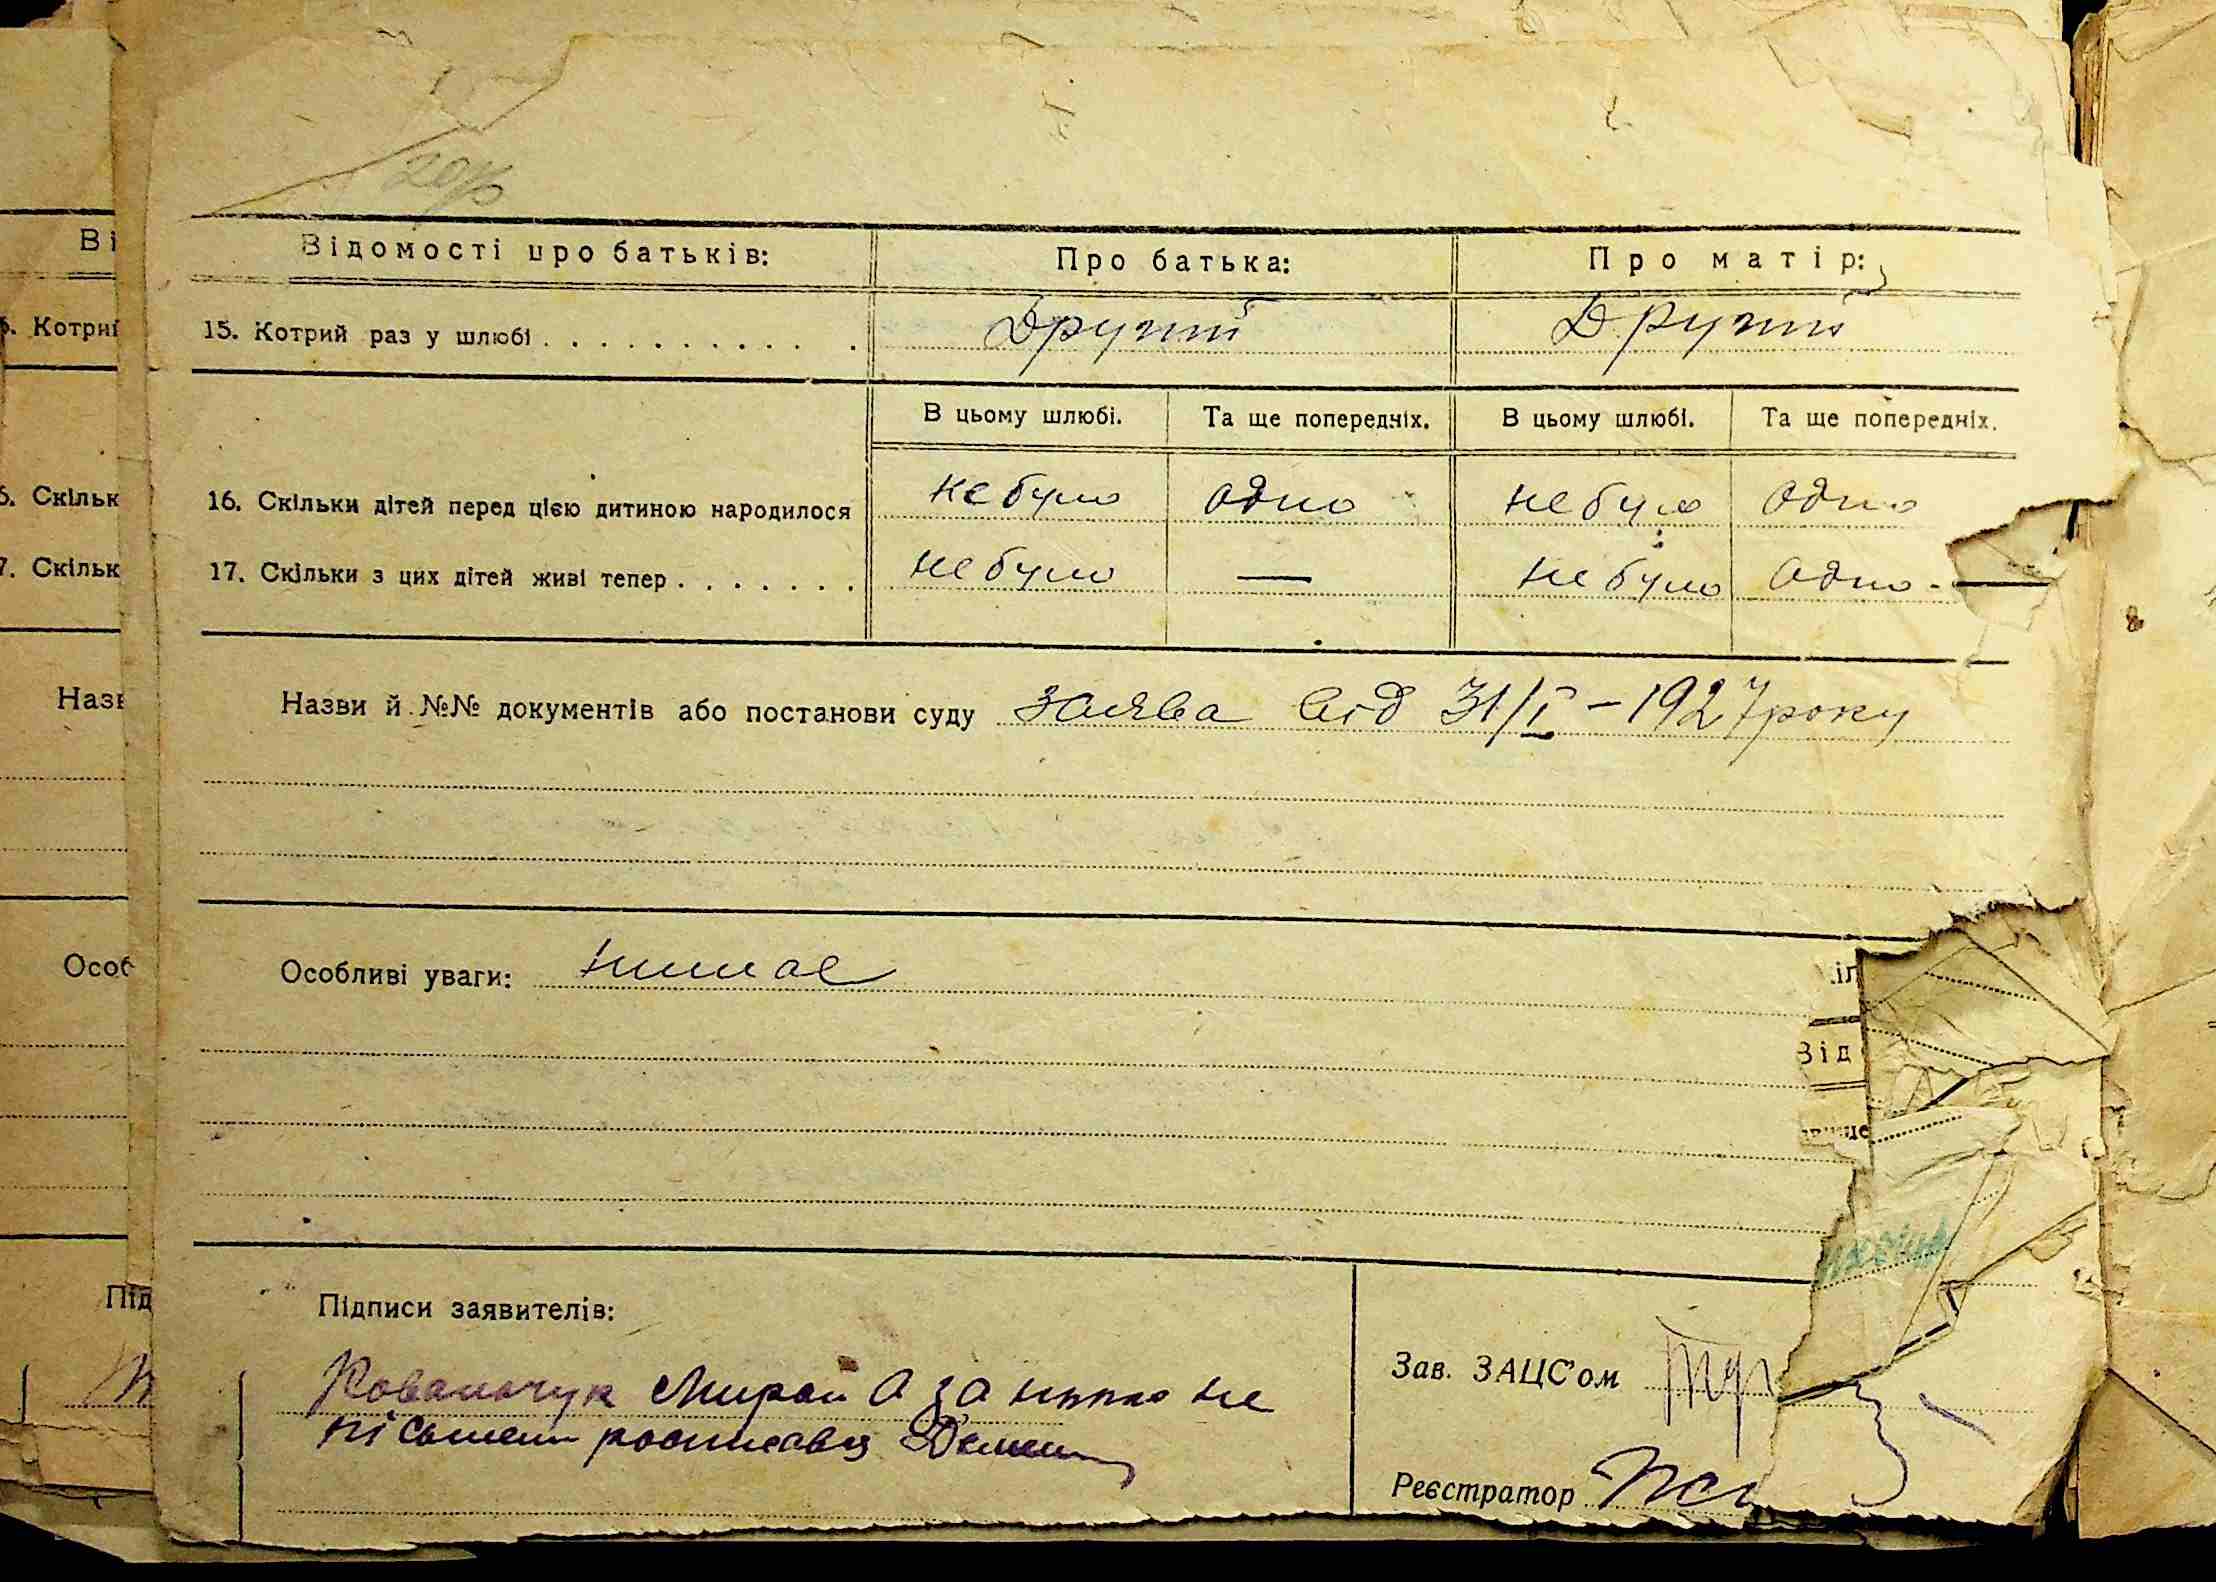 Відомості про батьків: Про батька: Про матір:
15. Котрий раз у шлюбі Другий Другий
В цьому шлюбі. Та ще попередніх. В цьому шлюбі. Та ще попередніх.
16. Скільки дітей перед цією дитиною народилося не було одно не було одно
17. Скільки з цих дітей живі тепер не було — не було одно
Назви й №№ документів або постанови суду заява від 31/I – 1927 року
Особливі уваги: Нимає
Підписи заявителів:
Ковальчук а за
росписався
Зав. ЗАЦС'ом
Реєстратор
Ві
Котрий
Скільк
Скільк
Назв
Особ
Під
Від